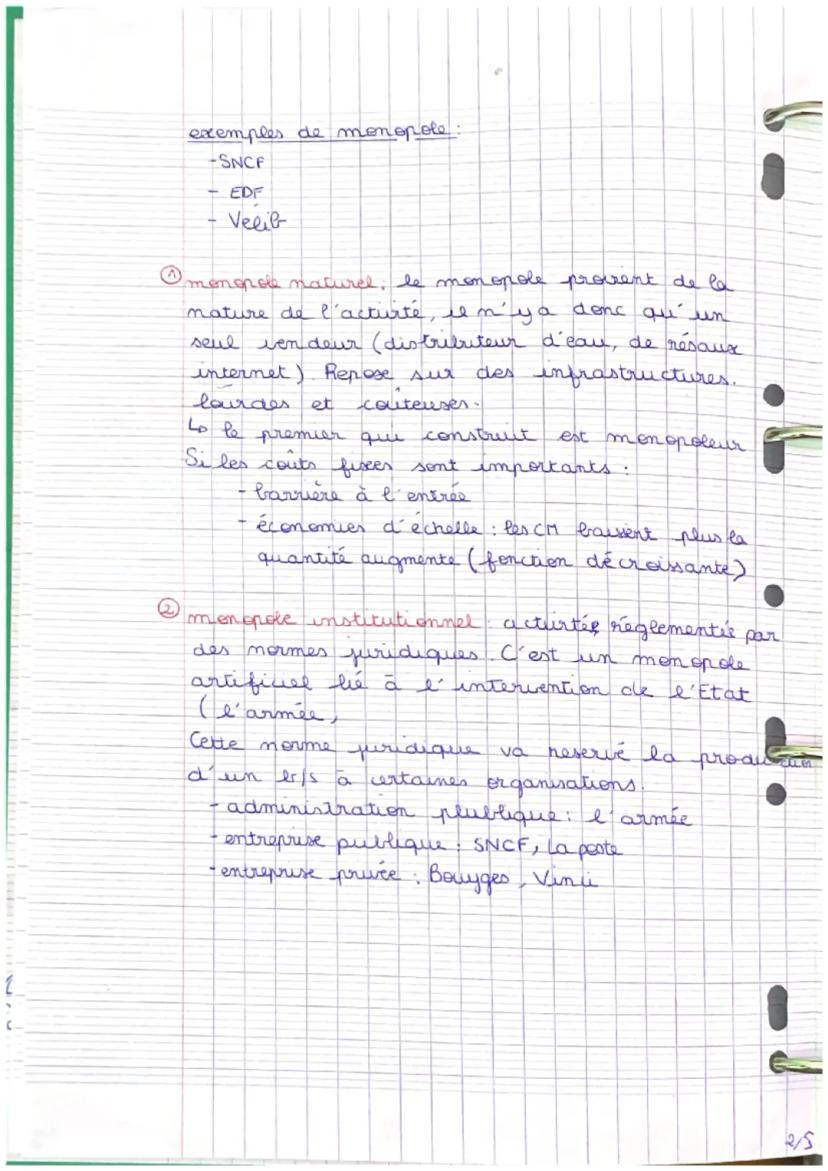 exemples de monopole :
- SNCF
- EDF
- Velib
① monopole naturel : le monopole provient de la
nature de l'activité, il n'y a donc qu'un
seul vendeur (distributeur d'eau, de résaux
internet). Repose sur des infrastructures.
lourdes et coûteuses.
↳ le premier qui construit est monopoleur
Si les coûts fixes sont importants :
- barrière à l'entrée
- économies d'échelle : les CM baissent plus la
quantité augmente (fonction décroissante)
② monopole institutionnel : activités réglementée par
des normes juridiques. C'est un monopole
artificiel lié à l'intervention de l'Etat
(l'armée,
Cette norme juridique va reservé la production
d'un b/s à certaines organisations.
- administration plublique : l'armée
- entreprise publique : SNCF, La poste
- entreprise privée : Bouyges, Vinci
2/5